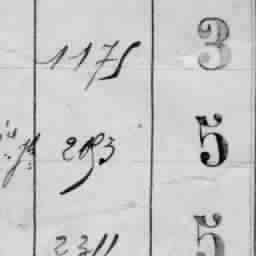 1175 3
2093 5
2311 5